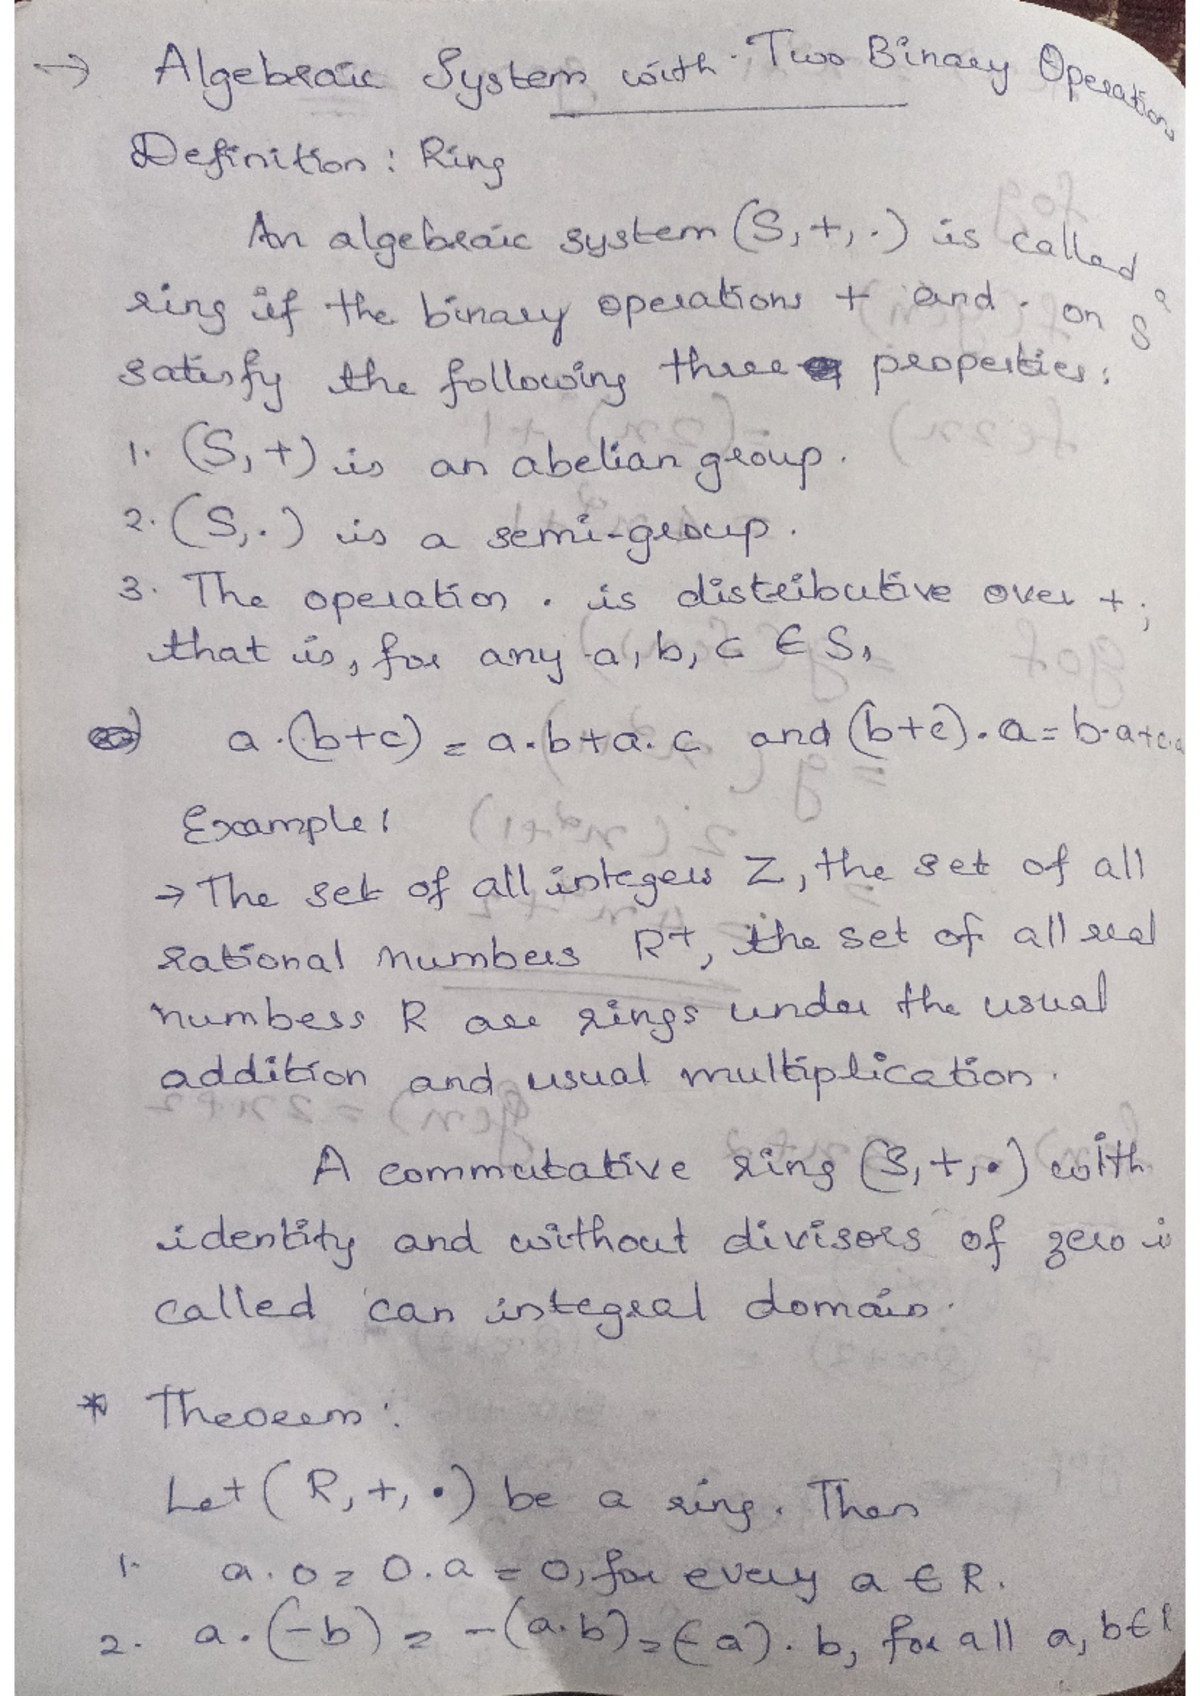 → Algebraic System with Two Binary Operations
Definition : Ring
An algebraic system (S, +, .) is called a
ring if the binary operations + and . on S
satisfy the following three properties:
1. (S, +) is an abelian group.
2. (S, .) is a semi-group.
3. The operation . is distributive over +;
that is, for any a, b, c ∈ S,
a.(b+c) = a.b+a.c and (b+c).a = b.a+c.a
Example:
→ The set of all integers Z, the set of all
rational numbers R+, the set of all real
numbess R are rings under the usual
addition and usual multiplication.
A commutative ring (S, +, •) with
identity and without divisors of zero is
called can integral domain.
* Theorem :
Let (R, +, •) be a ring. Then
1. a.0 = 0.a = 0, for every a ∈ R.
2. a.(-b) = -(a.b) = (-a).b, for all a, b ∈ R